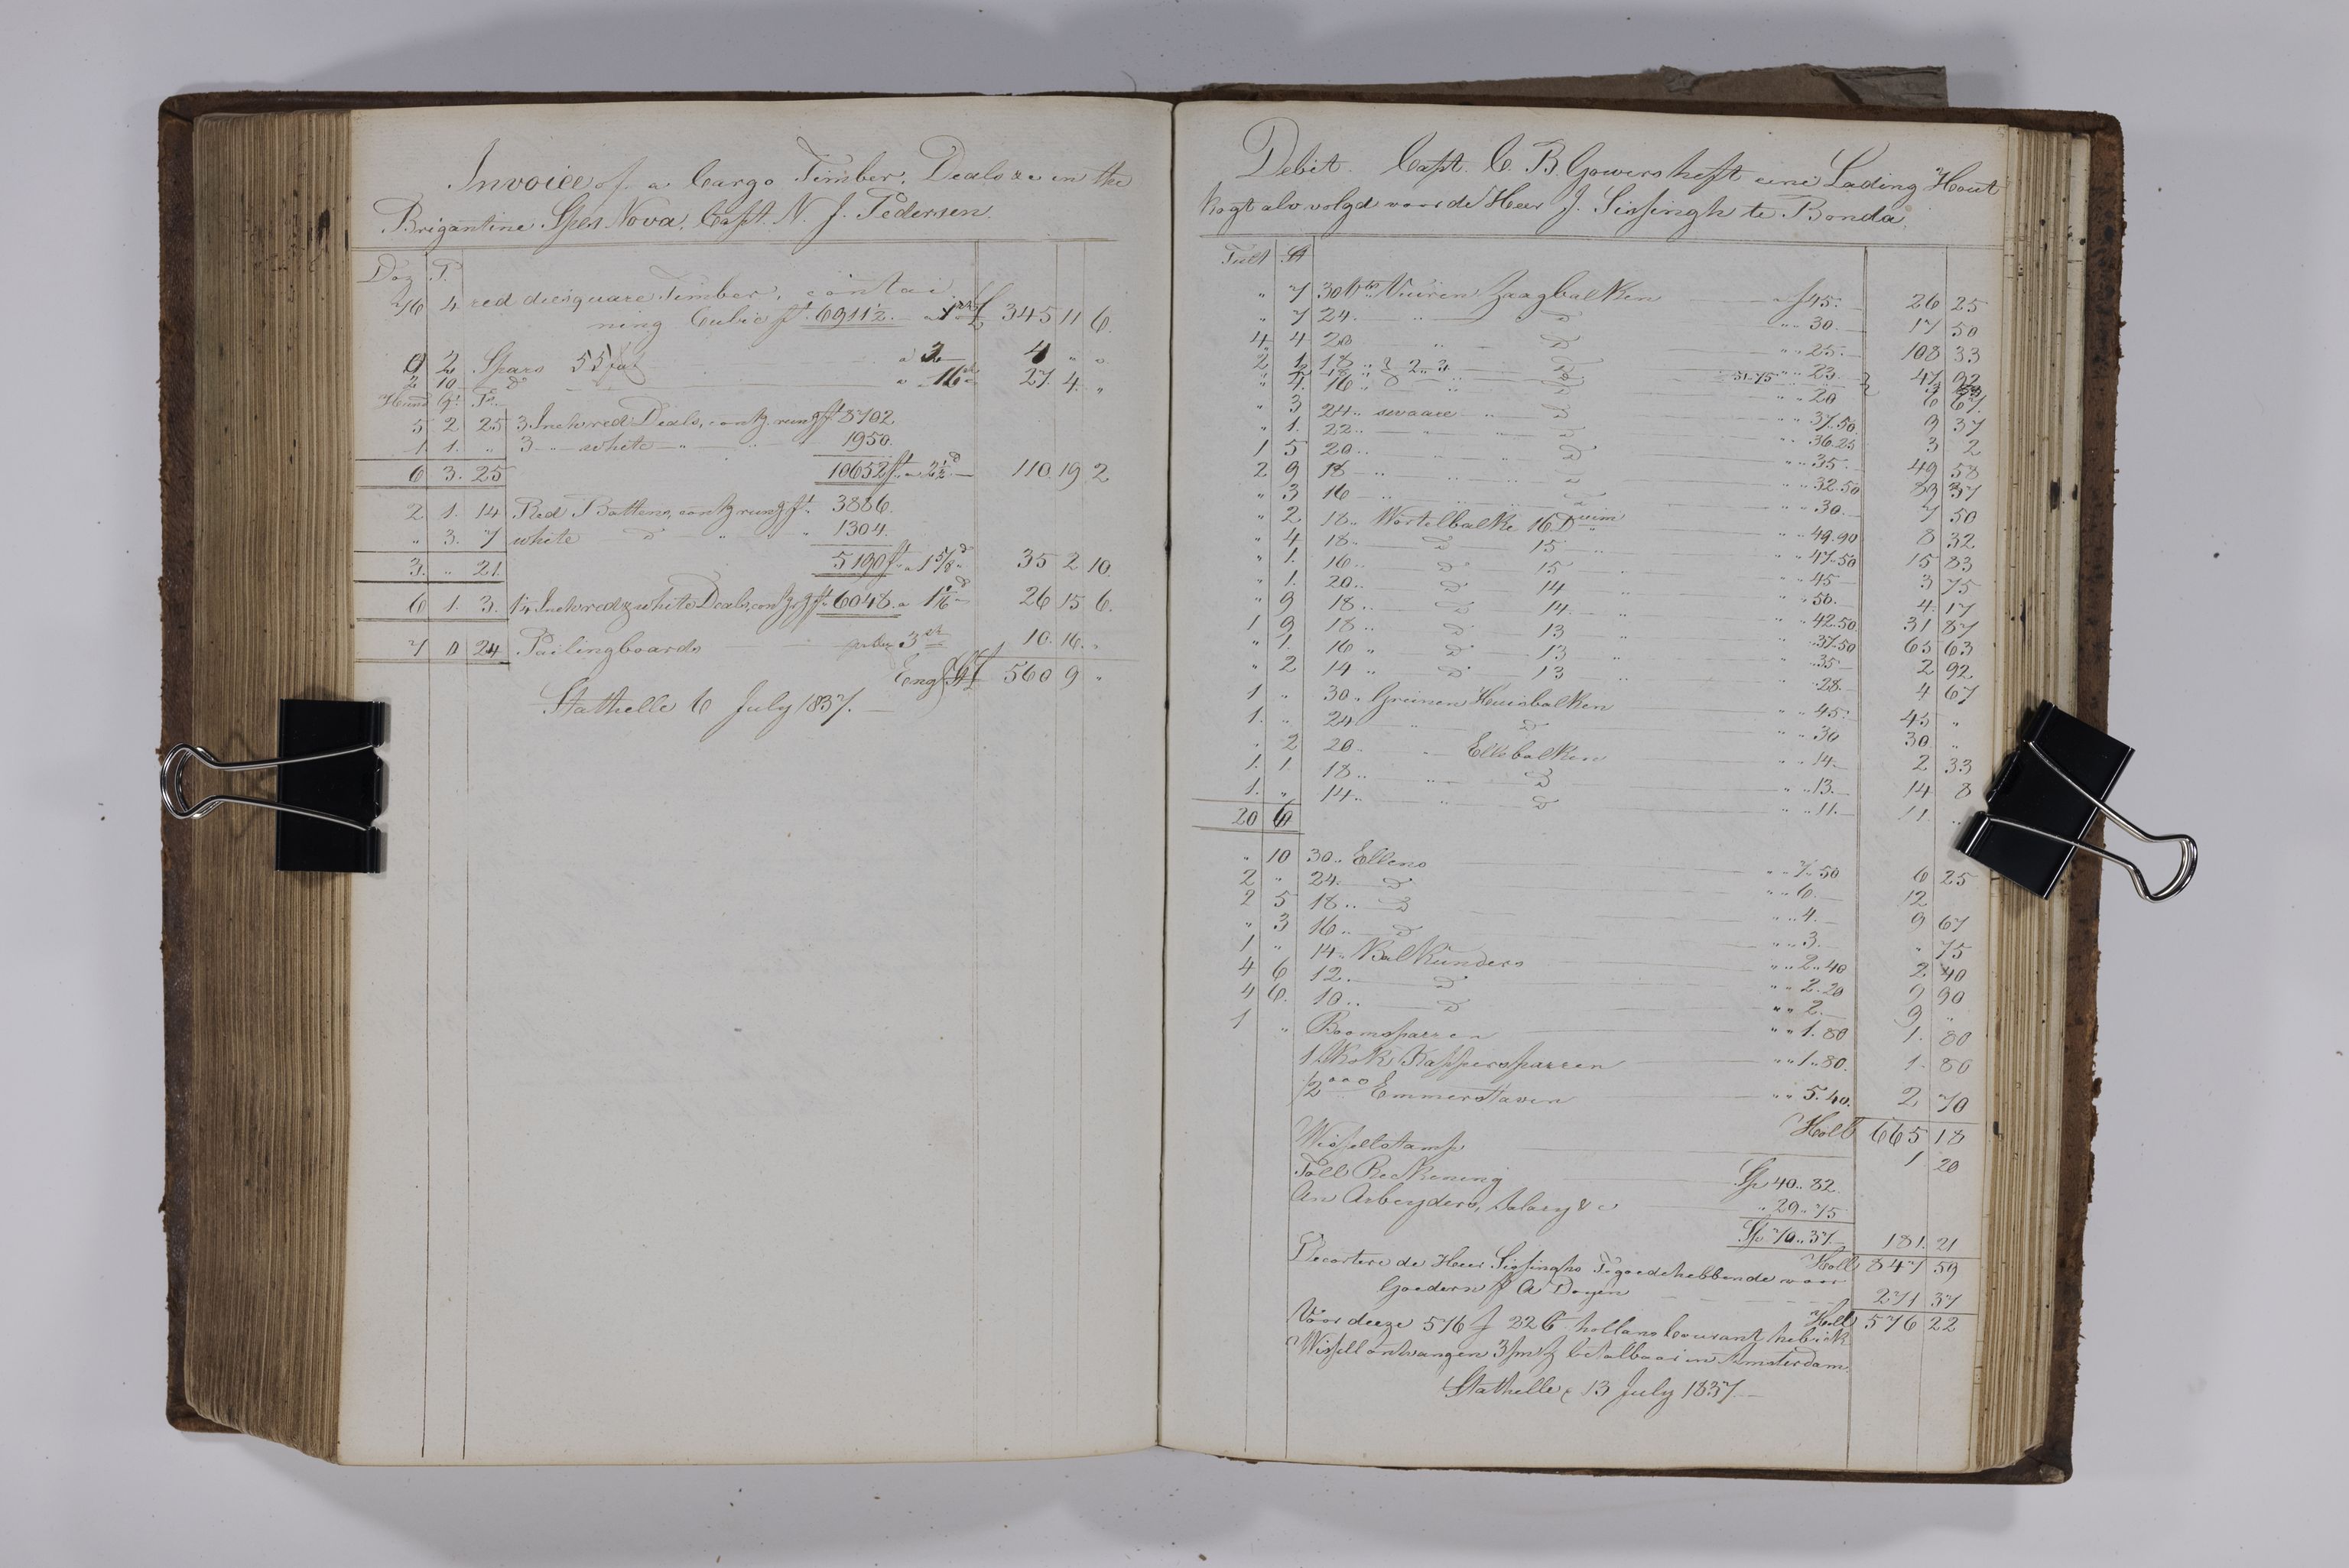 Invoice of a Cargo Timber, Deals &c in the
Brigantine Spes Nova, Capt. N. J. Pedersen.
Doz P.
76 4 red diesquare Timber, contai
ning Cubic ft. 6911½ a 1 £ 345 11 6.
0 2 Spars 55 a 2 4 " "
2 10 Do a 16 27. 4. "
Hund qt. Ps.
5 2 25 3 Inch red Deals, contg. rung ft 8702
1. 1. " 3 " white " " 1950.
6 3. 25 10652 ft. a 2½d 110. 19 2
2 1. 14 Red Battens, contg rung ft. 3886.
" 3. 7 white Do " " " 1304.
3. " 21. 5190 ft. a 1 5/8d 35 2 10.
6 1. 3. 1¼ Inch red & white Deals, contg rg ft. 6048. a 1 1/16d 26 15 6.
7 0 24 Pailingboards 3 10. 16. "
Eng St £ 560 9 "
Stathelle 6 July 1837.
Debit. Capt. C. B. Gowers heft eine Lading Hout
kogt als volgd voor de Heer J. Sissingh te Bonda.
Tult St
" 7 30 Vts Vuiren Zaagbalken a f 45. 26 25
" 7 24. " D " " 30. 17 50
4 4 20 " D " " 25. 108 33
2 1 18 " 2. 3. D " " 23. 47 92
" 4. 16 " " D " " 20 6 67.
" 3 24 " swaare " D " " 37.50. 9 37
" 1. 22 " " " D " " 36.25 3 2
1 5 20 " " " D " " 35. 49 58
2 9 18 " " " D " " 32.50 89 37
" 3 16 " " " D " " 30. 7 50
" 2 18 " Wortelbalke 16 Duim " " 49.90 8 32
" 4 18 " D 15 " " " 47.50 15 83
" 1. 16 " D 15 " " " 45 3 75
" 1. 20 " D 14 " " " 50. 4. 17
" 9 18 " D 14. " " " 42.50 31 87
1 9 18 " D 13 " " " 37.50 65 63
" 1. 16 " D 13 " " " 35 2 92
" 2 14 " D 13 " " " 28. 4 67
1 " 30 " Greinen Heuisbalken " " 45. 45 "
1. " 24 " D " " 30 30 "
" 2 20 " " Ellebalken " " 14. 2 33
1. 1. 18 " " D " " 13. 14 8
1. " 14 " " D " " 11. 11. "
20 6
" 10 30 " Ellens " " 7.50 6 25
2 " 24. D " " 6. 12
2 5 18 " D " " 4. 9 67
" 3 16 " D " " 3. " 75
1 " 14 " Balkunders " " 2.40 2 40
4 6 12 " D " " 2.20 9 90
4 6. 10 " D " " 2. 9 "
1 " Boomsparren " " 1.80 1. 80
Kappersparren " " 1.80. 1. 80
Emmerstaven " " 5.40. 2 70
Holl 665 18
Wisselstamp 1 20
Toll Reckening Sp 40 " 82.
An Arbeyders, Salary &c " 29 " 75
Sp 70 " 37. 181. 21
Holl 847 59
Decortere de Heer Sissinghs Tegoedehebbende voor
Goedern f A Doyen 271 37
Holl 576 22
Voor deeze 576 f 22 C hollans Courant heb ick
Wissell ontvangen 3 betalbaar in Amsterdam.
Stathelle 13 July 1837.